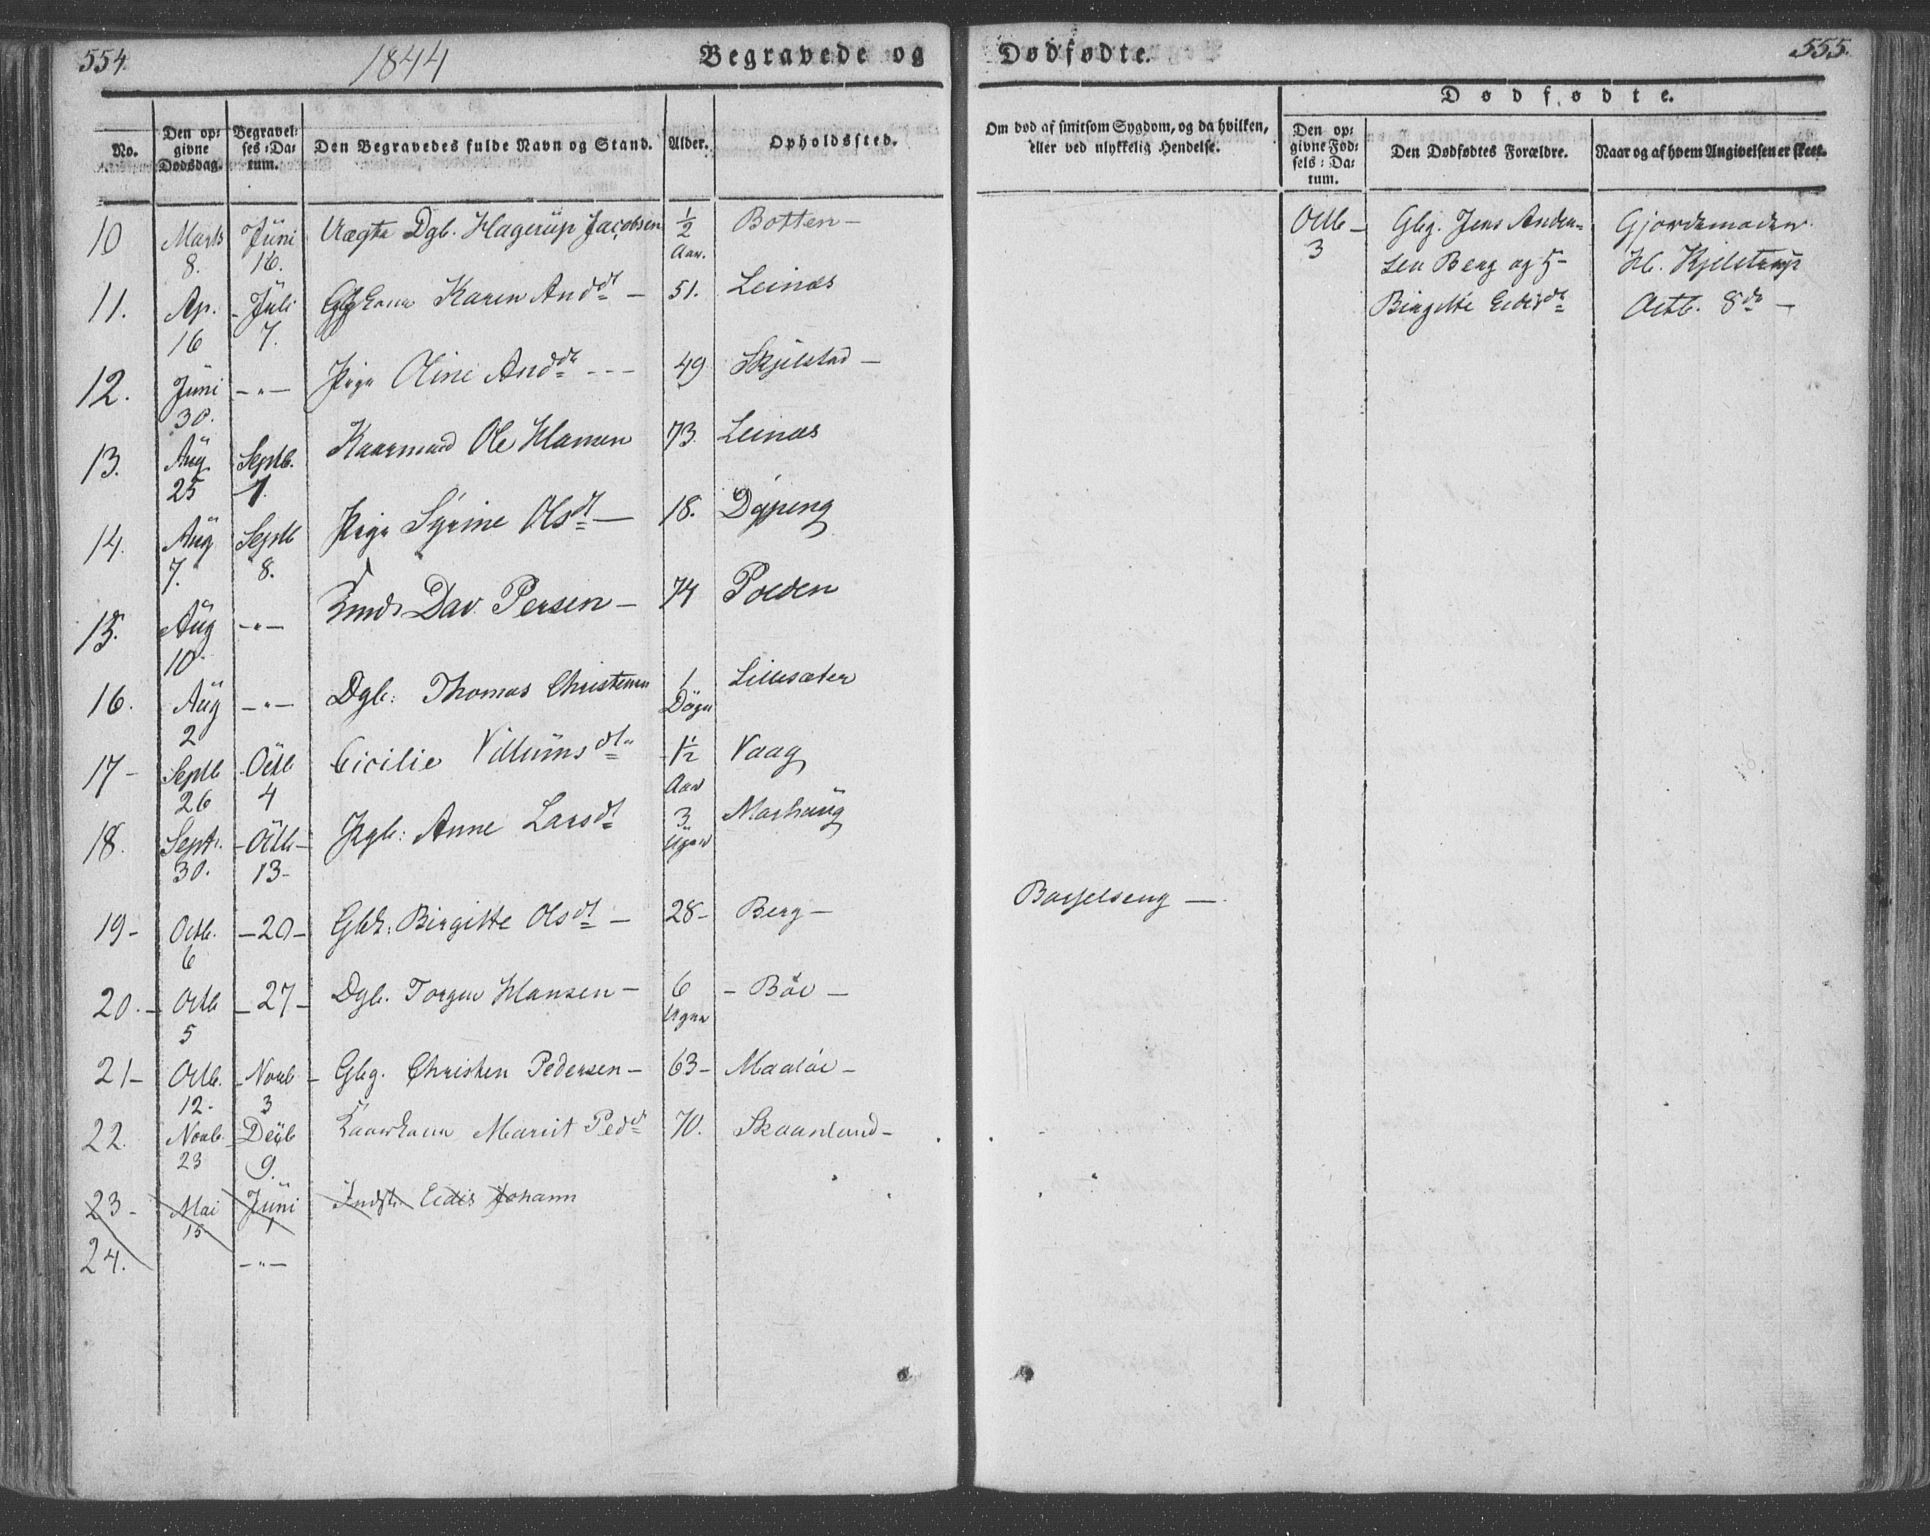 554. 1844 Begravede og
Dødfødte. 555.
No. Den opgivne Dødsdag. Begravelses-Datum. Den Begravedes fulde Navn og Stand. Alder. Opholdssted.
Om død af smitsom Sygdom, og da hvilken, eller ved ulykkelig Hendelse.
Dødfødte.
Den opgivne Fødsels-Datum. Den Dødfødtes Forældre. Naar og af hvem Angivelsen er skeet.
10 Marts 8. Juni 16. Uægte Dgb. Hagerup Jacobsen ½ Aar. Botten —
11. Ap. 16 - Juli 7. Karen Anddt — 51. Leinæs
12. Juni 30. — " — Pige Oline Anddt - - - 49 Skjelstad —
13. Aug 25 Septb. 1. Kaarmand Ole Hansen 73. Leinæs
14. Aug 7. Septb 8. Pige Syrine Olsdt — 18. Dypeng
15. Aug 10. — " — Dav. Persen — 74 Polden
16. Aug 2 — " — Dgb: Thomas Christensen 1 Døgn Lillesæter
17 - Septb 26 - Octb 4 Cicilie Villumsdtr 1½ Aar Vaag
18. Septr. 30. - Octb - 13 - Pgb: Anne Larsdt 3 Uger Marhaug
19 - Octb. 6 — 20 — Gbk: Birgitte Olsdt — 28 - Berg —
Barselseng —
20. - Octb 5 — 27 — Dgb. Torger Hansen — 6 Uger - Bøe —
21 - Octb. 12 - - Novb - 3 Gbg. Christen Pedersen — 63 - Maaløe —
22. Novb - 23 Decb 9. Kaarkone Marit Peddt 70. Skaanland —
23 - Mai 15 Juni 1 Indst. Eidis Johann
24. — " —
Octb — 3 Gbg. Jens Ander-
sen Berg og H-
Birgitte Eidisdt
Gjordemoder
H. Kjelstrup
Octb. 8de —